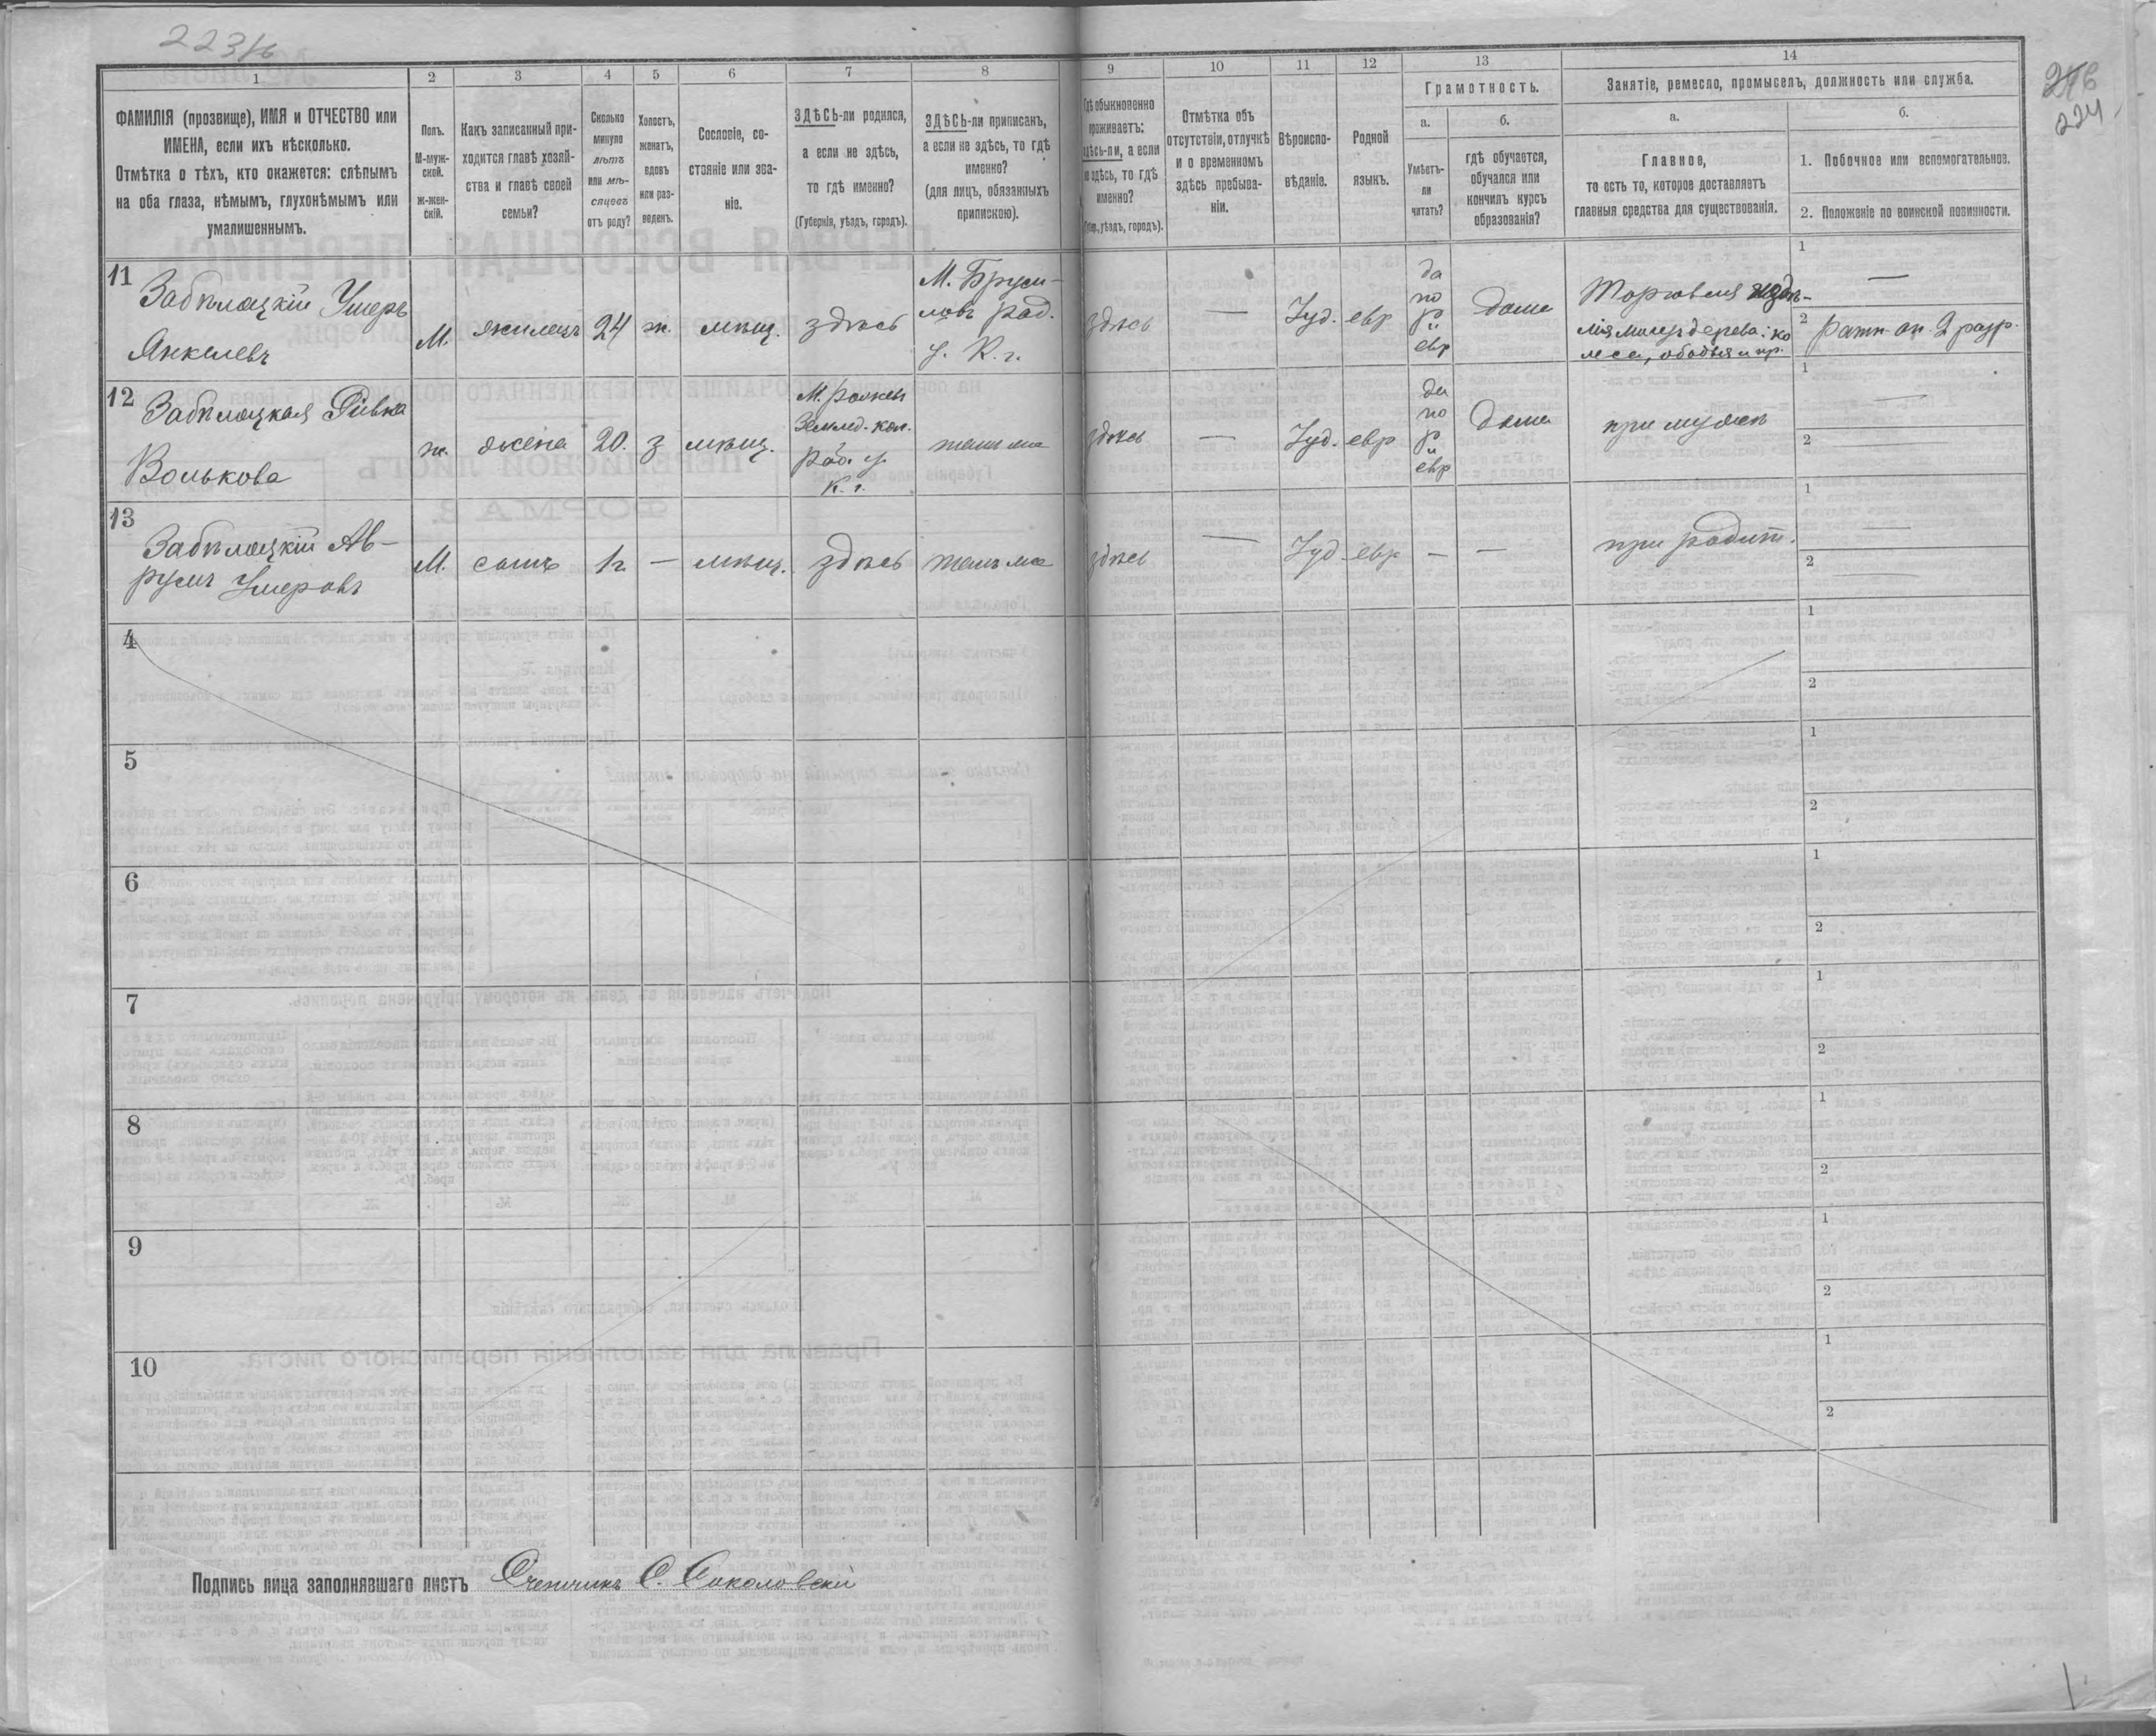 223/б
276
224
1
2
3
4
5
6
7
8
9
10
11
12
13
14
ФАМИЛІЯ (прозвище), ИМЯ и ОТЧЕСТВО или
ИМЕНА, если ихъ нѣсколько.
Отмѣтка о тѣхъ, кто окажется: слѣпымъ
на оба глаза, нѣмымъ, глухонѣмымъ или
умалишеннымъ.
Полъ.
М-муж-
ской.
Ж-жен-
скій.
Какъ записанный при-
ходится главѣ хозяй-
ства и главѣ своей
семьи?
Сколько
минуло
лѣтъ
или мѣ-
сяцевъ
отъ роду?
Холостъ,
женатъ,
вдовъ
или раз-
веденъ.
Сословіе, со-
стояніе или зва-
ніе.
ЗДѢСЬ-ли родился,
а если не здѣсь,
то гдѣ именно?
(Губернія, уѣздъ, городъ).
ЗДѢСЬ-ли приписанъ,
а если не здѣсь, то гдѣ
именно?
(для лицъ, обязанныхъ
припискою).
Гдѣ обыкновенно
проживаетъ:
здѣсь-ли, а если
не здѣсь, то гдѣ
именно?
(Губ., уѣздъ, городъ).
Отмѣтка объ
отсутствіи, отлучкѣ
и о временномъ
здѣсь пребыва-
ніи.
Вѣроиспо-
вѣданіе.
Родной
языкъ.
Грамотность.
а.
Умѣетъ-
ли
читать?
б.
гдѣ обучается,
обучался или
кончилъ курсъ
образованія?
Занятіе, ремесло, промыселъ, должность или служба.
а.
Главное,
то есть то, которое доставляетъ
главныя средства для существованія.
б.
1. Побочное или вспомогательное.
2. Положеніе по воинской повинности.
11
Забѣлоцкій Умеръ
Янкелевъ
М.
жилецъ
24
ж.
мѣщ.
здѣсь
М. Бруси-
ловъ Рад.
у. К. г.
здѣсь
—
Іуд.
евр
да
по
р
и
евр
дома
Торговля издѣ-
лія
дерева: ко
леса, ободья и пр.
1
—
2
ратн. оп. 2 разр.
12
Забѣлоцкая Ривка
Волькова
ж.
жена
20.
з
мѣщ.
Землед. кол.
Рад. у.
К. г.
тамъ же
здѣсь
—
Іуд.
евр
да
по
р
и
евр
дома
при мужѣ
1
—
2
13
Забѣлоцкій Ав-
румъ Умеровъ
М.
сынъ
1г.
—
мѣщ.
здѣсь
тамъ же
здѣсь
—
Іуд
евр
—
—
при родит.
1
—
2
—
4
1
2
5
1
2
6
1
2
7
1
2
8
1
2
9
1
2
10
1
2
Подпись лица заполнявшаго листъ Счетчикъ С. Соколовскій